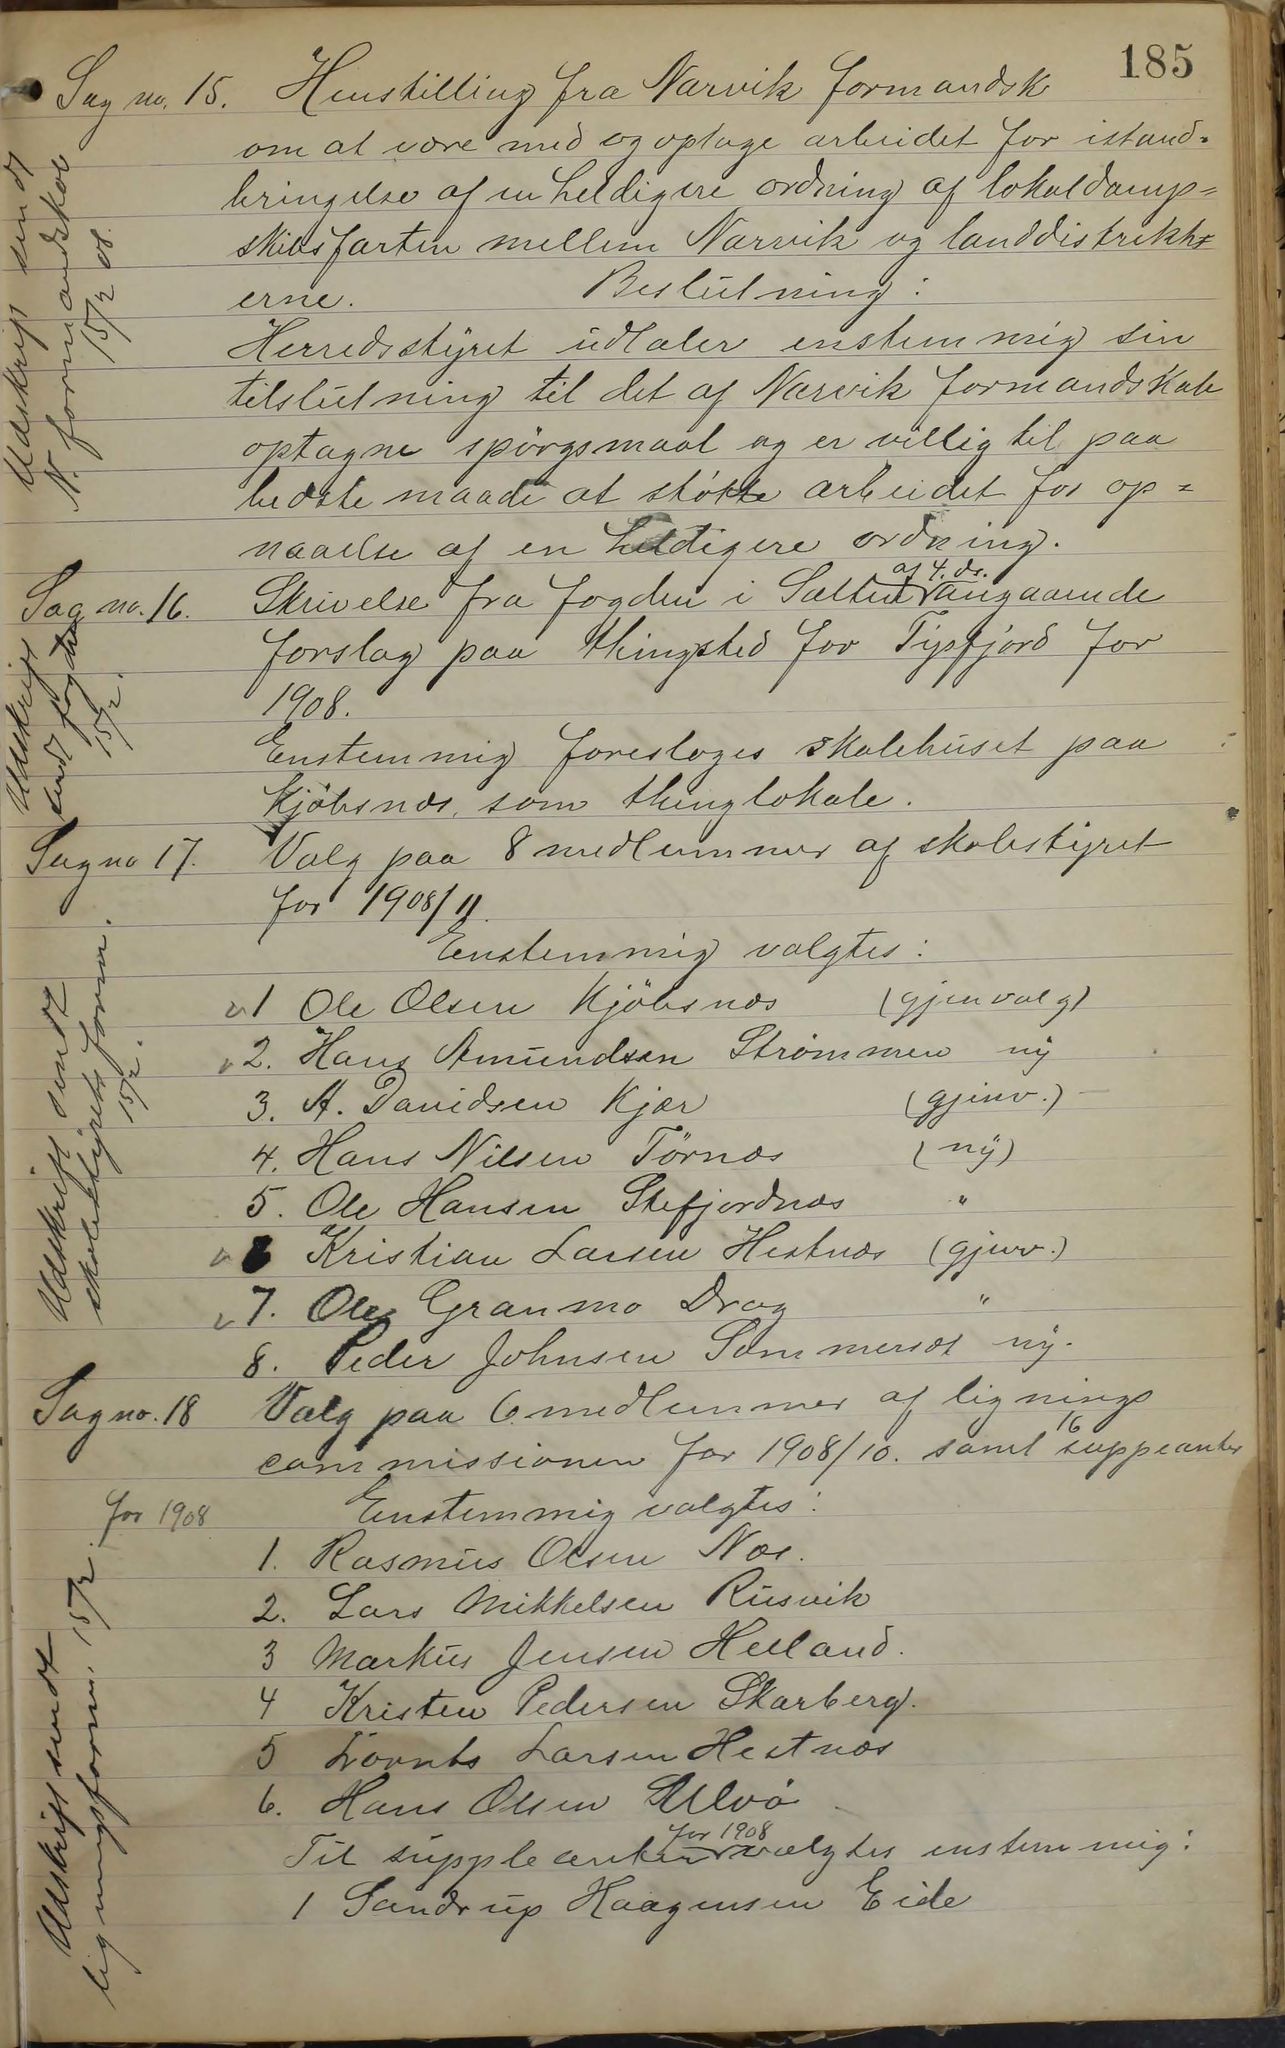 185
Sag no. 15. Henstilling fra Narvik formandsk
om at være med og optage arbeidet for istand=
bringelse af en heldigere ordning af lokaldamp=
skibsfarten mellem Narvik og landdistrikt=
erne. Beslutning:
Herredsstyret udtaler enstemmig sin
tilslutning til det af Narvik formandskab
optagne spörgsmaal og er villig til paa
bedste maade at støtte arbeidet for op=
naaelse af en heldigere ordning.
Udskrift sendt
N. formandskab
15/2 08.
Sag no. 16. Skrivelse fra fogden i Salten af 4. ds. angaaende
forslag paa thingsted for Tysfjord for
1908.
Enstemmig foresloges skolehuset paa
Kjöbsnæs som thinglokale.
Udskrift
sendt fogden
15/2.
Sag no 17. Valg paa 8 medlemmer af skolestyret
for 1908/11.
Enstemmig valgtes:
1 Ole Olsen Kjöbsnæs (gjenvalg)
2. Hans Amundsen Strømmen ny
3. A. Davidsen Kjær (gjenv.)
4. Hans Nilsen Törnæs (ny)
5. Ole Hansen Stefjordnæs "
6 Kristian Larsen Hestnæs (gjenv.)
7. Ole Granmo Drag "
8. Peder Johnsen Sommerset ny.
Udskrift sendt
skolestyrets form.
15/2.
Sag no. 18 Valg paa 6 medlemmer af lignings
commissionen for 1908/10. samt 16 suppeanter
for 1908
Enstemmig valgtes:
1. Rasmus Olsen Næs.
2. Lars Mikkelsen Rusvik
3 Markus Jensen Helland.
4 Kristen Pedersen Skarberg.
5 Larsen Hestnæs
6. Hans Olsen Ulvö
Til suppleanter for 1908 valgtes enstemmig:
1 Sandrup Haagensen Eide
Udskrift sendt
ligningsform. 15/2.